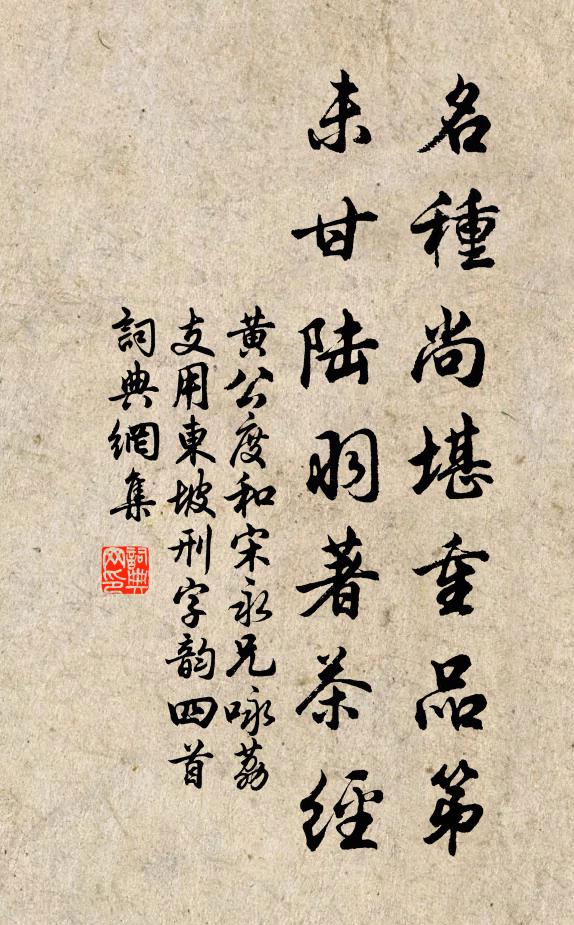 名種尚堪重品第
未甘陆羽著茶經
黄公度和宋永兄咏荔
支用東坡刑字韵四首
詞典網集
詞典網印